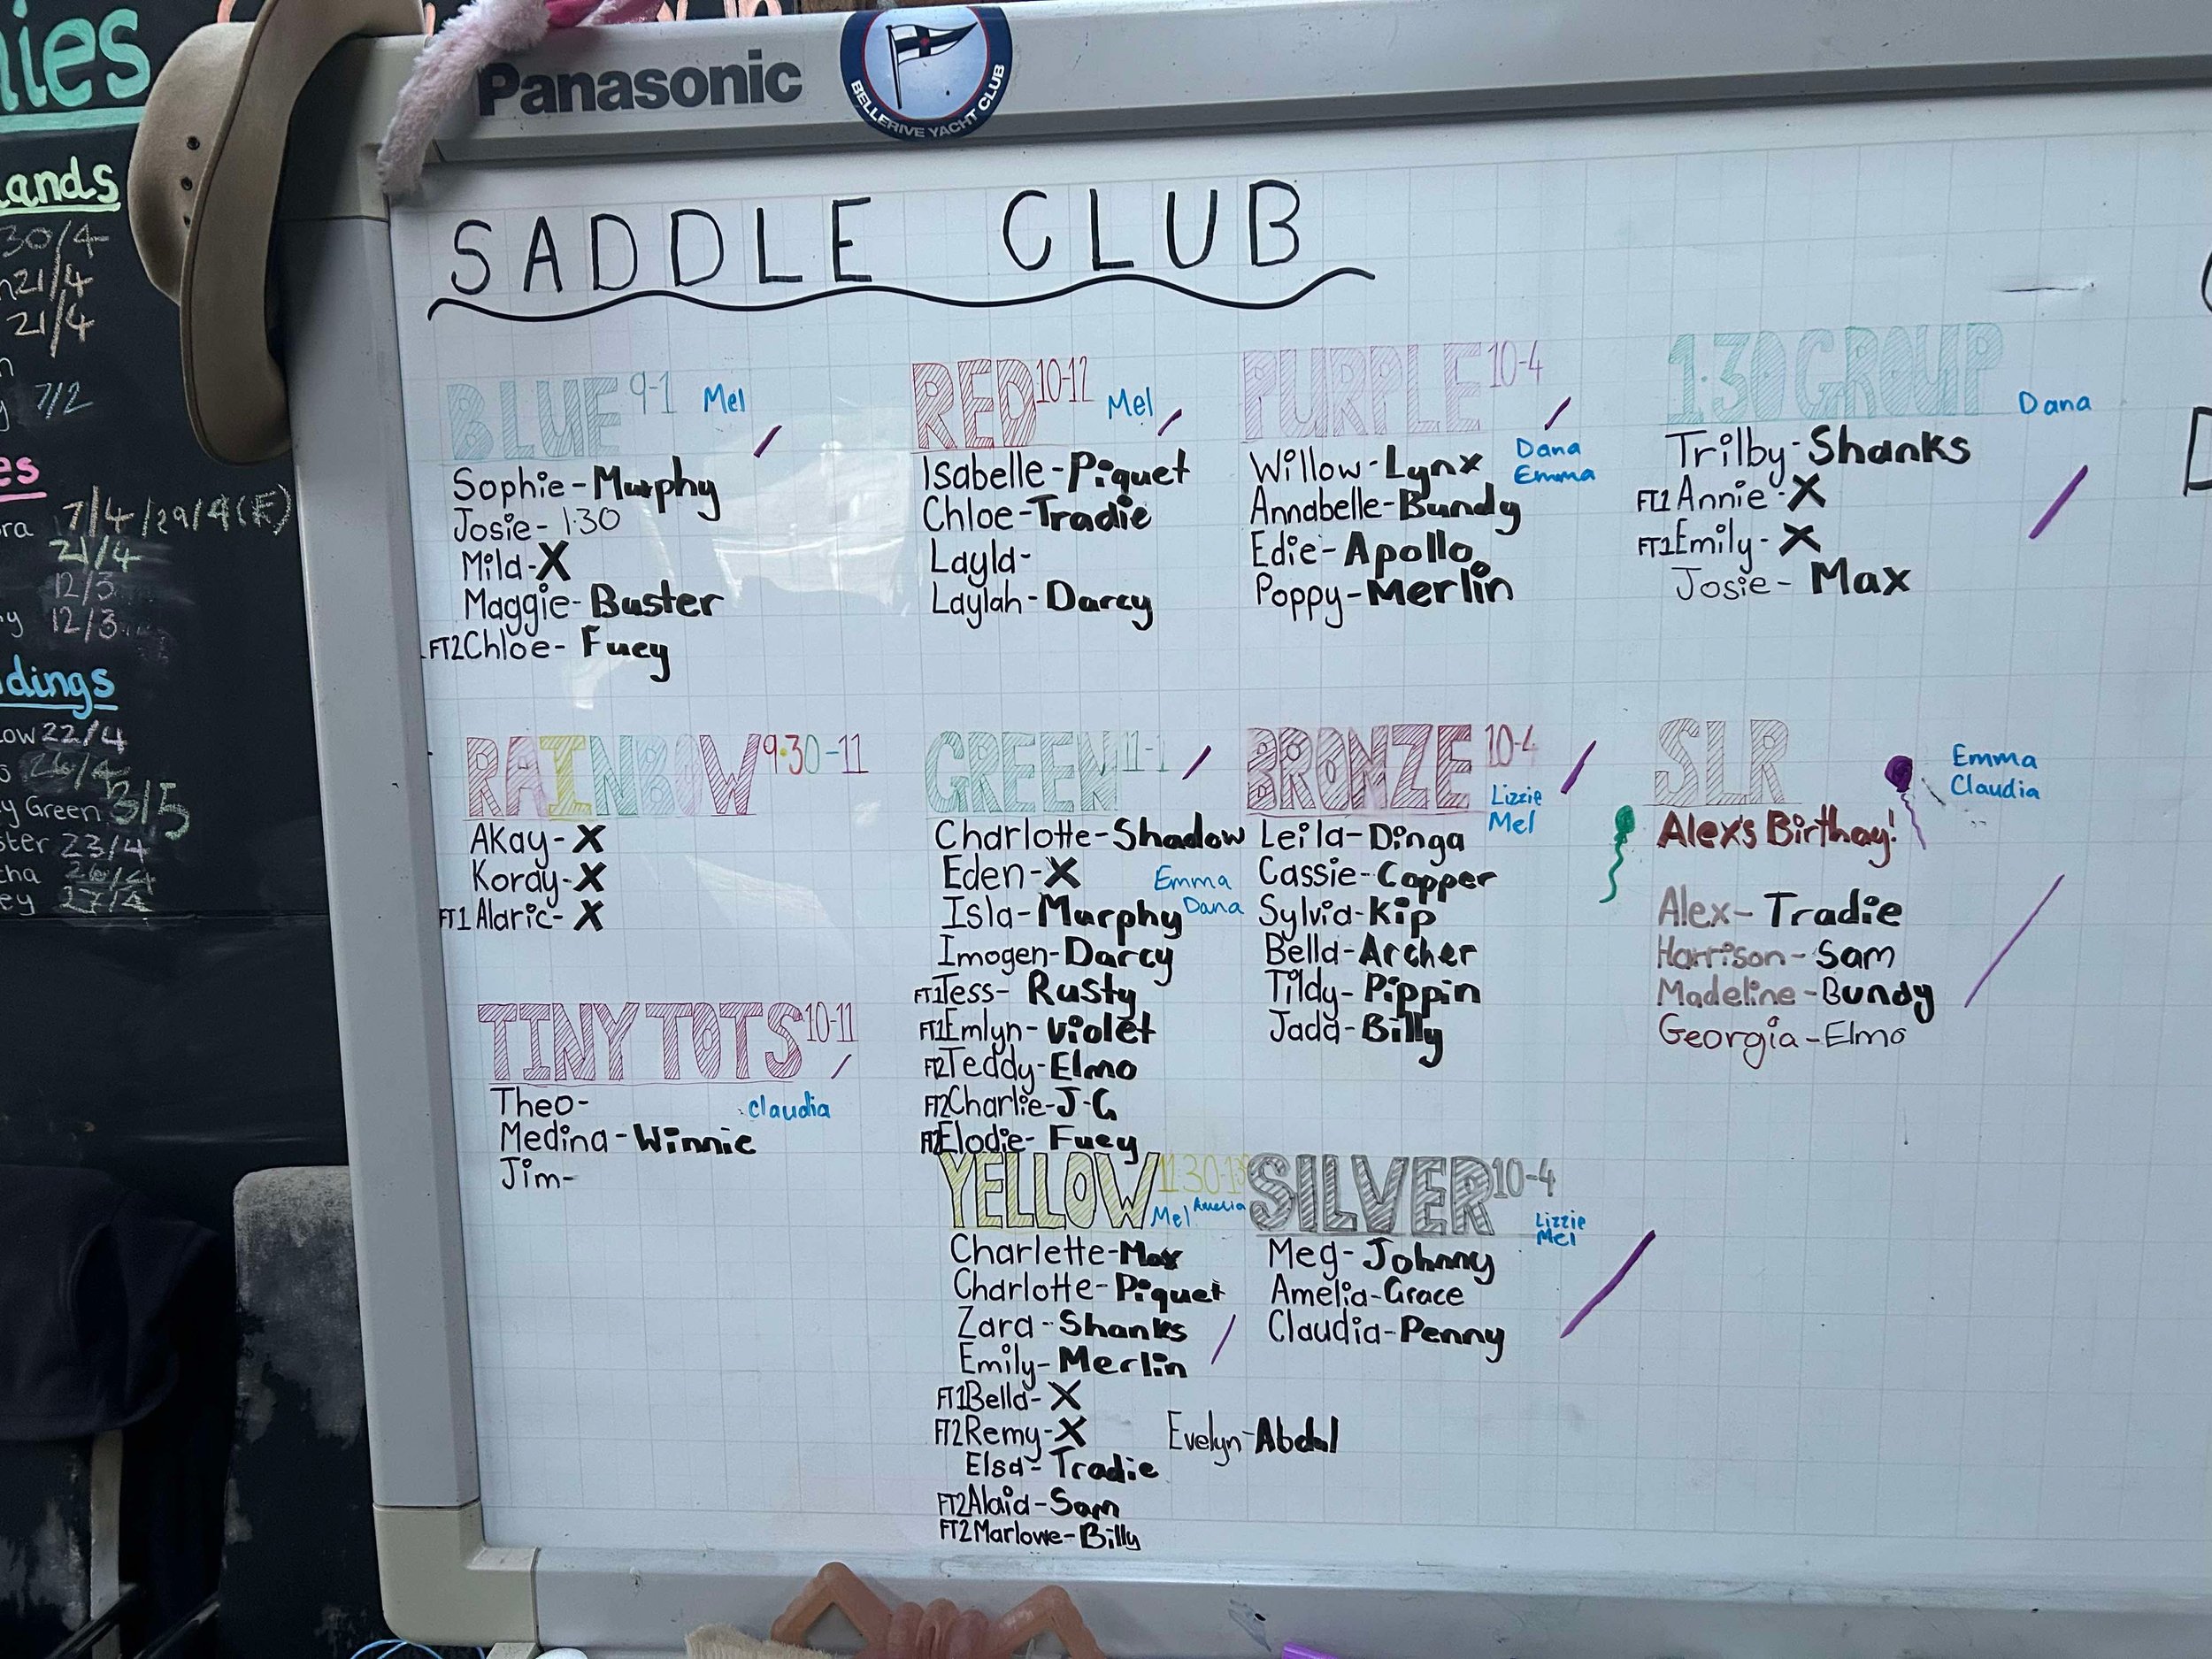 Panasonic
BELLERIVE YACHT CLUB
SADDLE CLUB
BLUE 9-1 Mel
Sophie- Murphy
Josie- 1:30
Mila- X
Maggie- Buster
FT2 Chloe- Fuey
RED 10-12 Mel
Isabelle- Piquet
Chloe- Tradie
Layla-
Laylah- Darcy
PURPLE 10-4
Dana
Emma
Willow- Lynx
Annabelle- Bundy
Edie- Apollo
Poppy- Merlin
1:30 GROUP Dana
Trilby- Shanks
FT1 Annie- X
FT1 Emily- X
Josie- Max
RAINBOW 9:30-11
Akay- X
Koray- X
FT1 Alaric- X
TINY TOTS 10-11
Claudia
Theo-
Medina- Winnie
Jim-
GREEN 11-1
Charlotte- Shadow
Eden- X Emma
Isla- Murphy Dana
Imogen- Darcy
FT1 Tess- Rusty
FT1 Emlyn- Violet
FT2 Teddy- Elmo
FT2 Charlie- J-G
Elodie- Fuey
YELLOW
Mel Amelia
Charlette- Max
Charlotte- Piquet
Zara- Shanks
Emily- Merlin
FT1 Bella- X
FT2 Remy- X
Elsa- Tradie
FT2 Alaid- Sam
FT2 Marlowe- Billy
Evelyn- Abdul
BRONZE 10-4
Lizzie
Mel
Leila- Dinga
Cassie- Copper
Sylvia- Kip
Bella- Archer
Tildy- Pippin
Jada- Billy
SILVER 10-4
Lizzie
Mel
Meg- Johnny
Amelia- Grace
Claudia- Penny
SLR
Emma
Claudia
Alex's Birthay!
Alex- Tradie
Harrison- Sam
Madeline- Bundy
Georgia- Elmo
ies
ands
30/4
21/4
21/4
7/2
es
ra 7/4/29/4(F)
21/4
12/3
y 12/3
dings
ow 22/4
26/4
y Green 3/5
ster 23/4
cha 26/4
ey 27/4